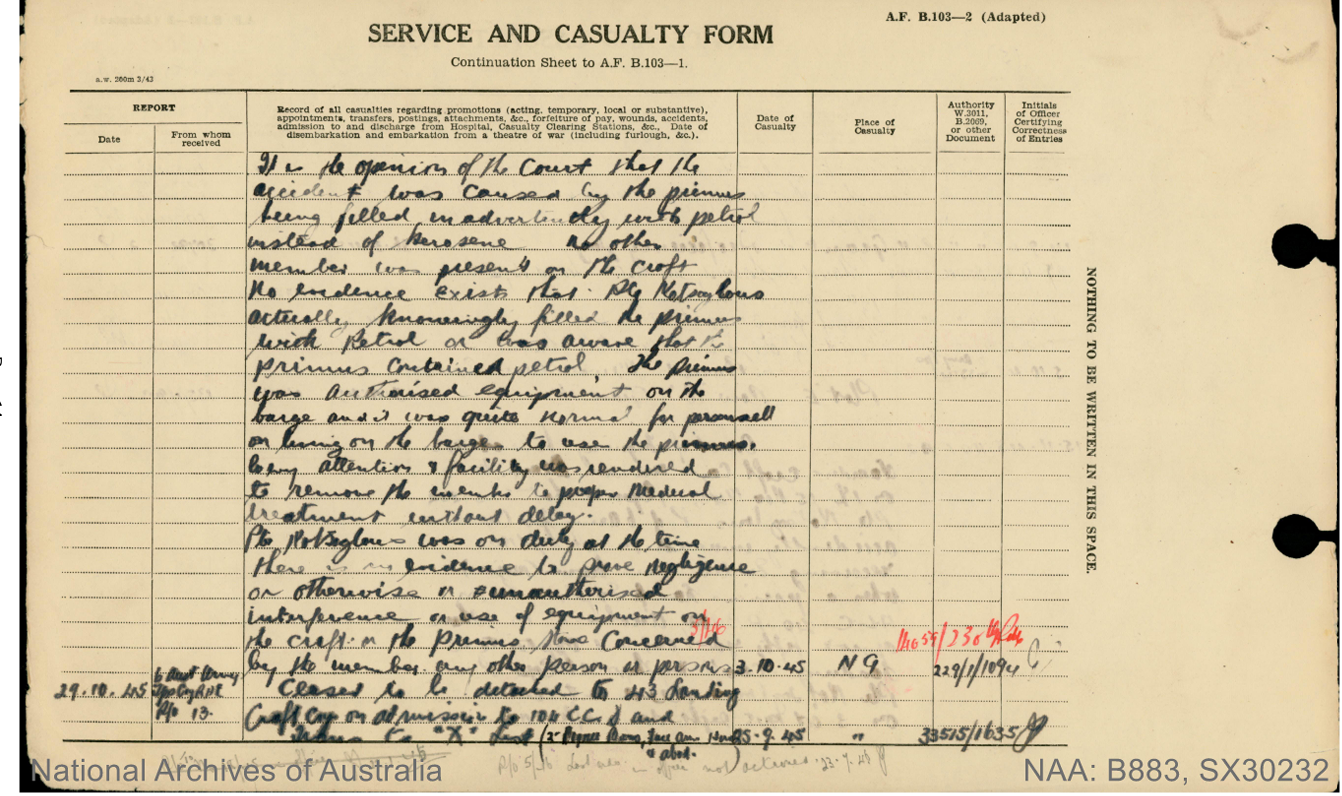 A.F. B.103—2 (Adapted)
SERVICE AND CASUALTY FORM
Continuation Sheet to A.F. B.103—1.
a.w. 260m 3/43
REPORT
Date
From whom received
Record of all casualties regarding promotions (acting, temporary, local or substantive),
appointments, transfers, postings, attachments, &c., forfeiture of pay, wounds, accidents,
admission to and discharge from Hospital, Casualty Clearing Stations, &c., Date of
disembarkation and embarkation from a theatre of war (including furlough, &c.).
Date of Casualty
Place of Casualty
Authority W.3011, B.2069, or other Document
Initials of Officer Certifying Correctness of Entries
It is the opinion of the Court that the
accident was caused by the primus
being filled inadvertently with petrol
instead of kerosene no other
member was present on the craft
No evidence exists that Pte
actually knowingly filled the primus
with Petrol or was aware that the
primus contained petrol. The primus
was authorised equipment on the
barge and it was quite normal for personnell
on the barges to use the primus.
attention & facility was rendered
to remove the to proper medical
treatment without delay.
Pte was on duty at the time
there is no evidence to prove negligence
or otherwise or unauthorised
interference or use of equipment on
the craft or the Primus Stove Concerned
by the member any other person or persons 3.10.45 N G 229/1/1094
29.10.45 Ceased to be detached to 43 Landing
P/o 13. Craft Coy on admission to 104 CCS and
to "X" List (2° Burns, Face 25.9.45 " 33515/1635
NOTHING TO BE WRITTEN IN THIS SPACE.
National Archives of Australia
NAA: B883, SX30232